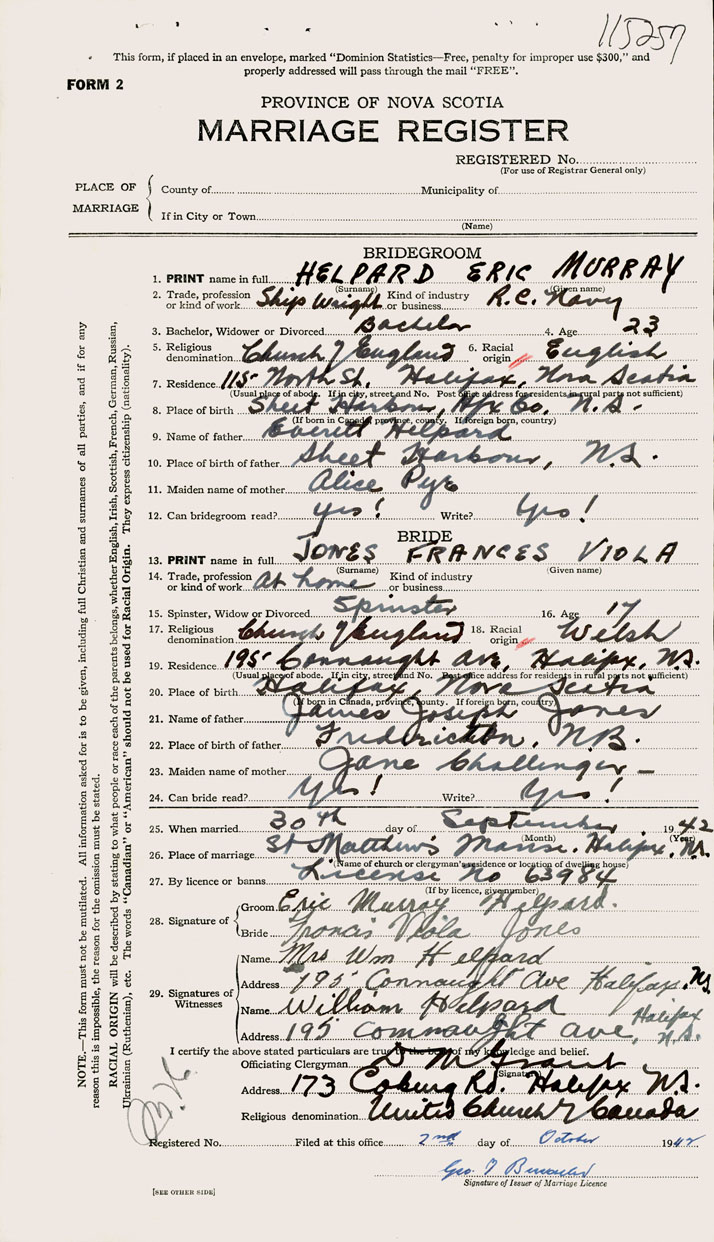 115257
This form, if placed in an envelope, marked "Dominion Statistics—Free, penalty for improper use $300," and
properly addressed will pass through the mail "FREE".
FORM 2
PROVINCE OF NOVA SCOTIA
MARRIAGE REGISTER
REGISTERED No.
(For use of Registrar General only)
PLACE OF MARRIAGE
County of Municipality of
If in City or Town
(Name)
BRIDEGROOM
1. PRINT name in full HELPARD ERIC MURRAY
(Surname) (Given name)
2. Trade, profession or kind of work Ship Wright Kind of industry or business R.C. Navy
3. Bachelor, Widower or Divorced Bachelor 4. Age 23
5. Religious denomination Church of England 6. Racial origin English
7. Residence 115 North St. Halifax, Nova Scotia
(Usual place of abode. If in city, street and No. Post office address for residents in rural parts not sufficient)
8. Place of birth Sheet Harbour, Hfx Co. N.S.
(If born in Canada, province, county. If foreign born, country)
9. Name of father Everett Helpard
10. Place of birth of father Sheet Harbour, N.S.
11. Maiden name of mother Alice Pye
12. Can bridegroom read? yes! Write? Yes!
BRIDE
13. PRINT name in full JONES FRANCES VIOLA
(Surname) (Given name)
14. Trade, profession or kind of work at home Kind of industry or business
15. Spinster, Widow or Divorced Spinster 16. Age 17
17. Religious denomination Church of England 18. Racial origin Welsh
19. Residence 195 Connaught Ave, Halifax, N.S.
(Usual place of abode. If in city, street and No. Post office address for residents in rural parts not sufficient)
20. Place of birth Halifax, Nova Scotia
(If born in Canada, province, county. If foreign born, country)
21. Name of father James Joseph Jones
22. Place of birth of father Fredericton, N.B.
23. Maiden name of mother Jane Challinger
24. Can bride read? Yes! Write? Yes!
25. When married 30th day of September 1942
(Month) (Year)
26. Place of marriage St Matthew's Manse. Halifax, N.S.
(Name of church or clergyman's residence or location of dwelling house)
27. By licence or banns License No 63984
(If by licence, give number)
28. Signature of
Groom Eric Murray Helpard.
Bride Francis Viola Jones
29. Signatures of Witnesses
Name Mrs Wm Helpard
Address 195 Connaught Ave Halifax. N.S
Name William Helpard
Address 195 Connaught ave, Halifax N.S.
I certify the above stated particulars are true to the best of my knowledge and belief.
Officiating Clergyman D M Grant
(Signature)
Address 173 Coburg Rd. Halifax N.S.
Religious denomination United Church of Canada
Registered No. Filed at this office 2nd day of October 1942
Geo.
Signature of Issuer of Marriage Licence
[SEE OTHER SIDE]
NOTE.—This form must not be mutilated. All information asked for is to be given, including full Christian and surnames of all parties, and if for any
reason this is impossible, the reason for the omission must be stated.
RACIAL ORIGIN will be described by stating to what people or race each of the parents belongs, whether English, Irish, Scottish, French, German, Russian,
Ukrainian (Ruthenian), etc. The words "Canadian" or "American" should not be used for Racial Origin. They express citizenship (nationality).